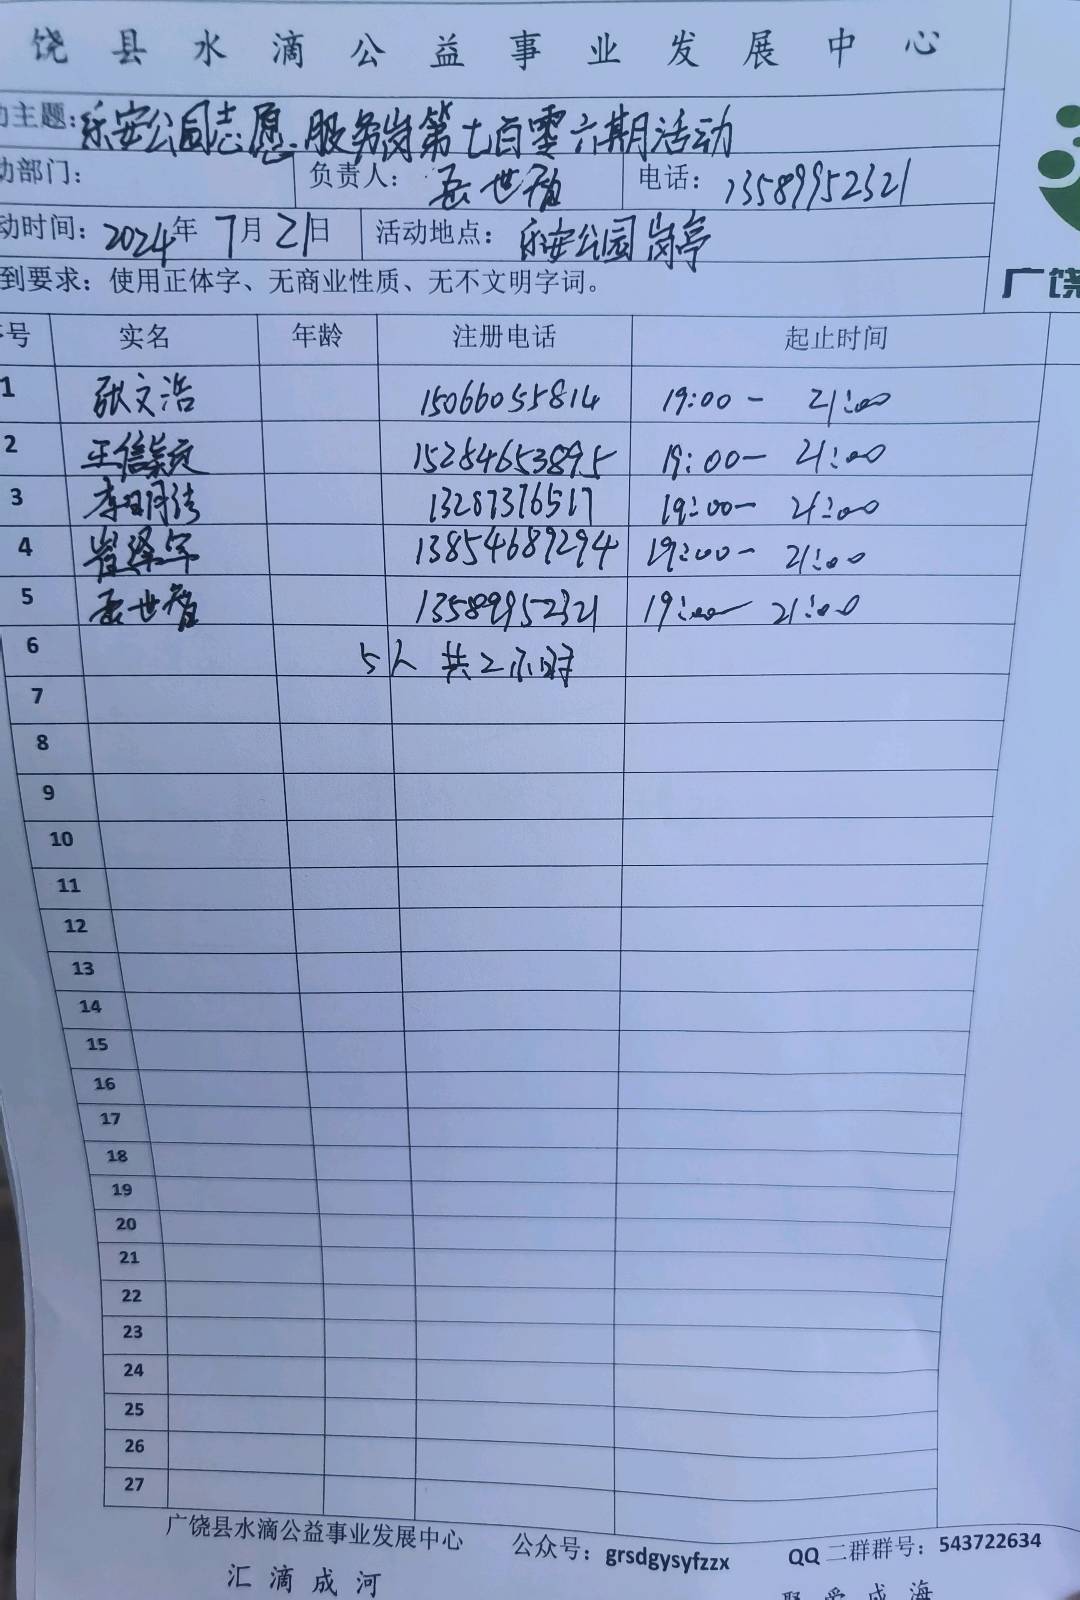 饶县水滴公益事业发展中心
动主题：乐安公园志愿服务岗第七百零六期活动
动部门： 负责人：岳世智 电话：13589952321
动时间：2024年7月21日 活动地点：乐安公园岗亭
到要求：使用正体字、无商业性质、无不文明字词。
广饶
序号 实名 年龄 注册电话 起止时间
1 张文浩 15066055814 19:00- 21:00
2 王信颖 15254653895 19:00- 21:00
3 李明洁 13287376517 19:00- 21:00
4 崔泽宇 13854689294 19:00- 21:00
5 岳世智 13589952321 19:00- 21:00
6 5人 共2小时
7
8
9
10
11
12
13
14
15
16
17
18
19
20
21
22
23
24
25
26
27
广饶县水滴公益事业发展中心 公众号：grsdgysyfzzx QQ二群群号：543722634
汇滴成河 聚爱成海